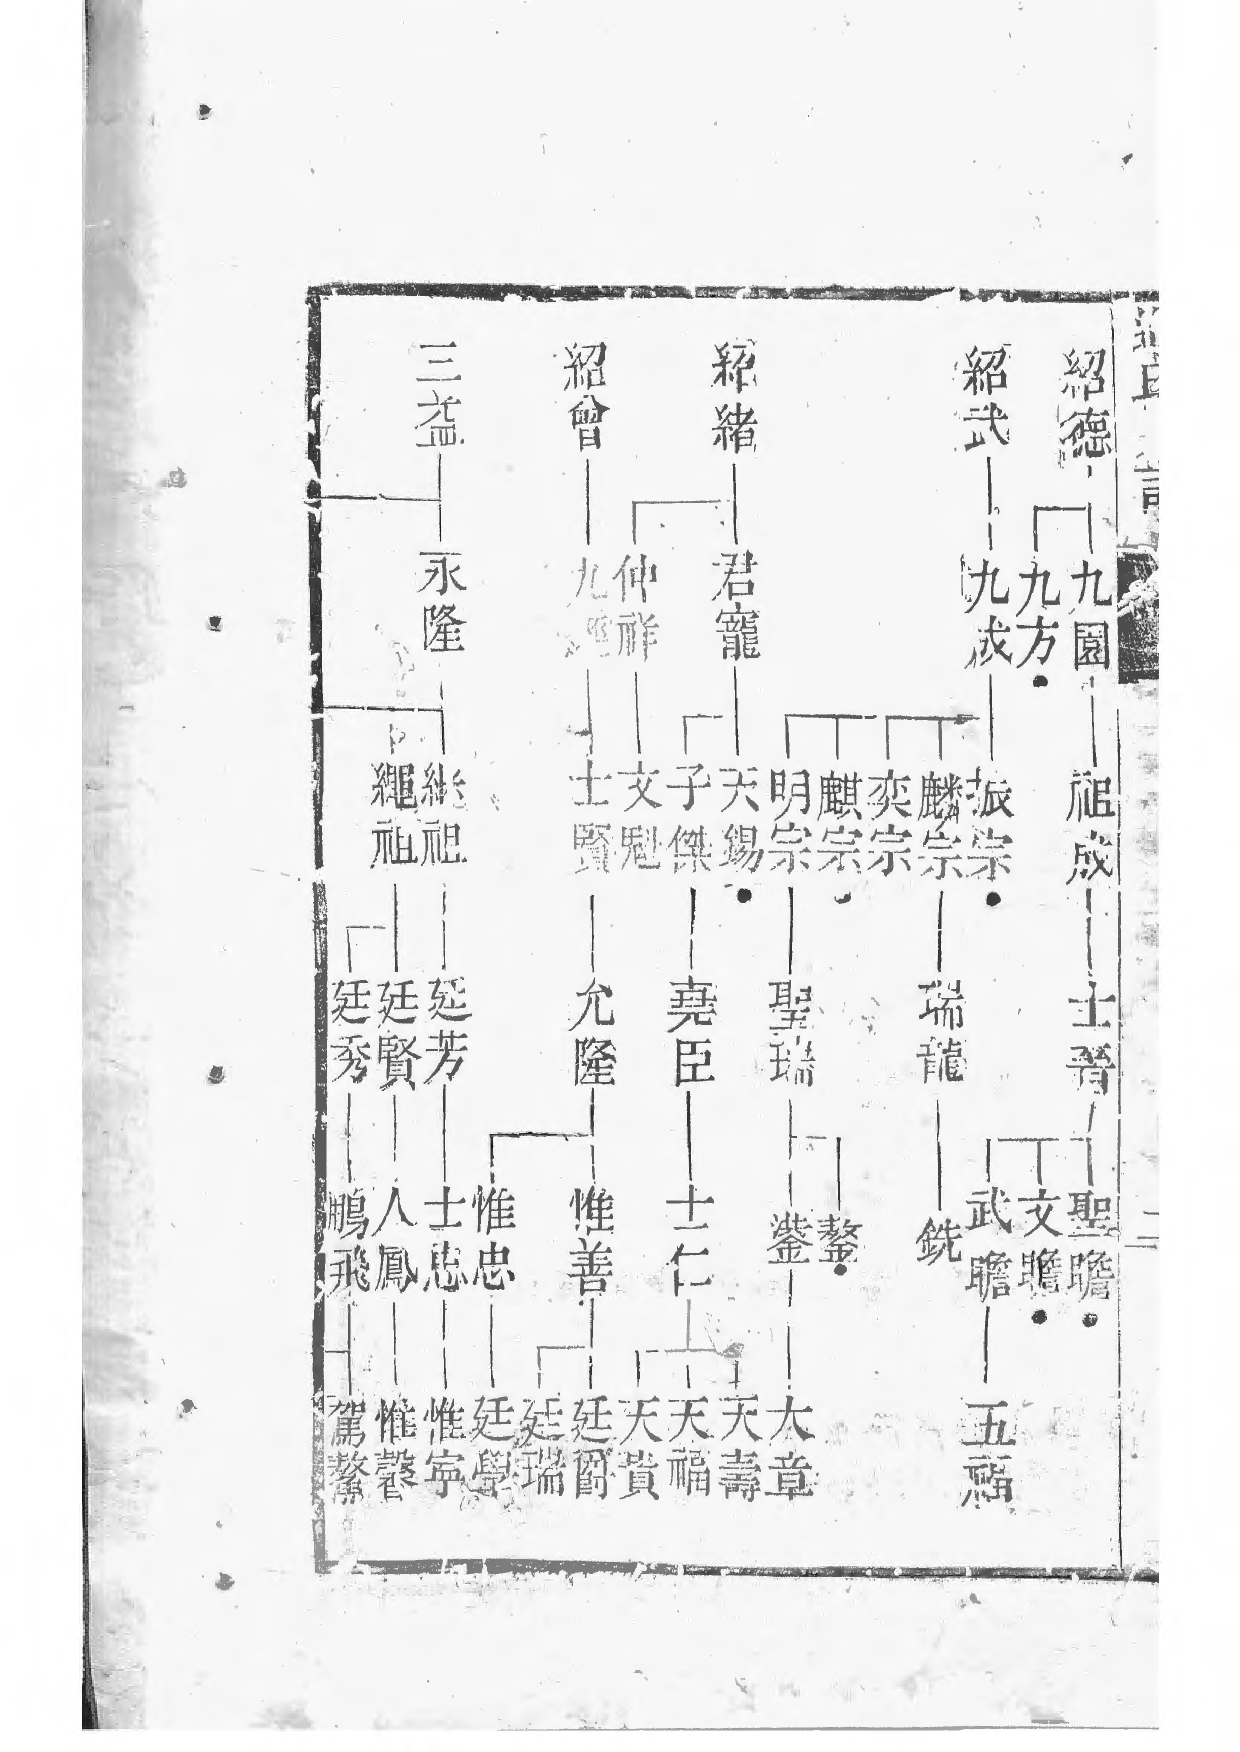 紹德
九園
九方
祖成
士晉
聖瞻
文瞻
武瞻
五福
紹武
九成
振宗
麟宗
奕宗
麒宗
明宗
瑞龍
聖瑞
銑
鏊
太章
紹緒
君寵
仲祥
天錫
子傑
文魁
堯臣
士仁
天壽
天福
天貴
紹曾
九
士賢
允隆
惟善
惟忠
廷爵
廷瑞
廷學
三益
永隆
繼祖
繩祖
廷芳
廷賢
廷秀
士忠
人鳳
鵬飛
惟寧
惟馨
駕鰲
二